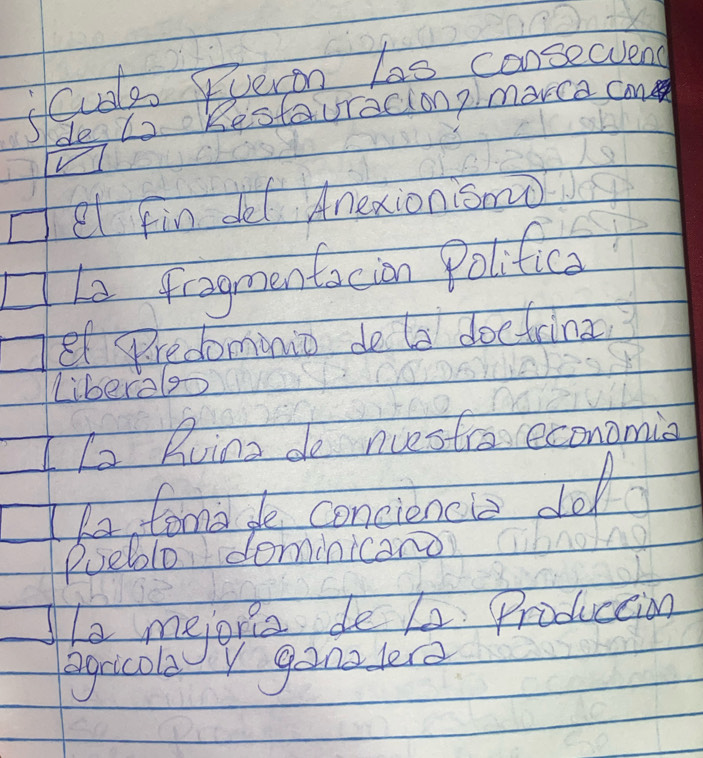 ¿Cuales Fueron las consecuenc
de la Restauracion? marca con
El Fin del Anexionismo
La fragmentacion Politica
El Predominio de la doctrina
Liberales
La Ruina de nuestra economia
La toma de conciencia del
Pueblo dominicano
La mejoria de la Produccion
agricola y ganadera